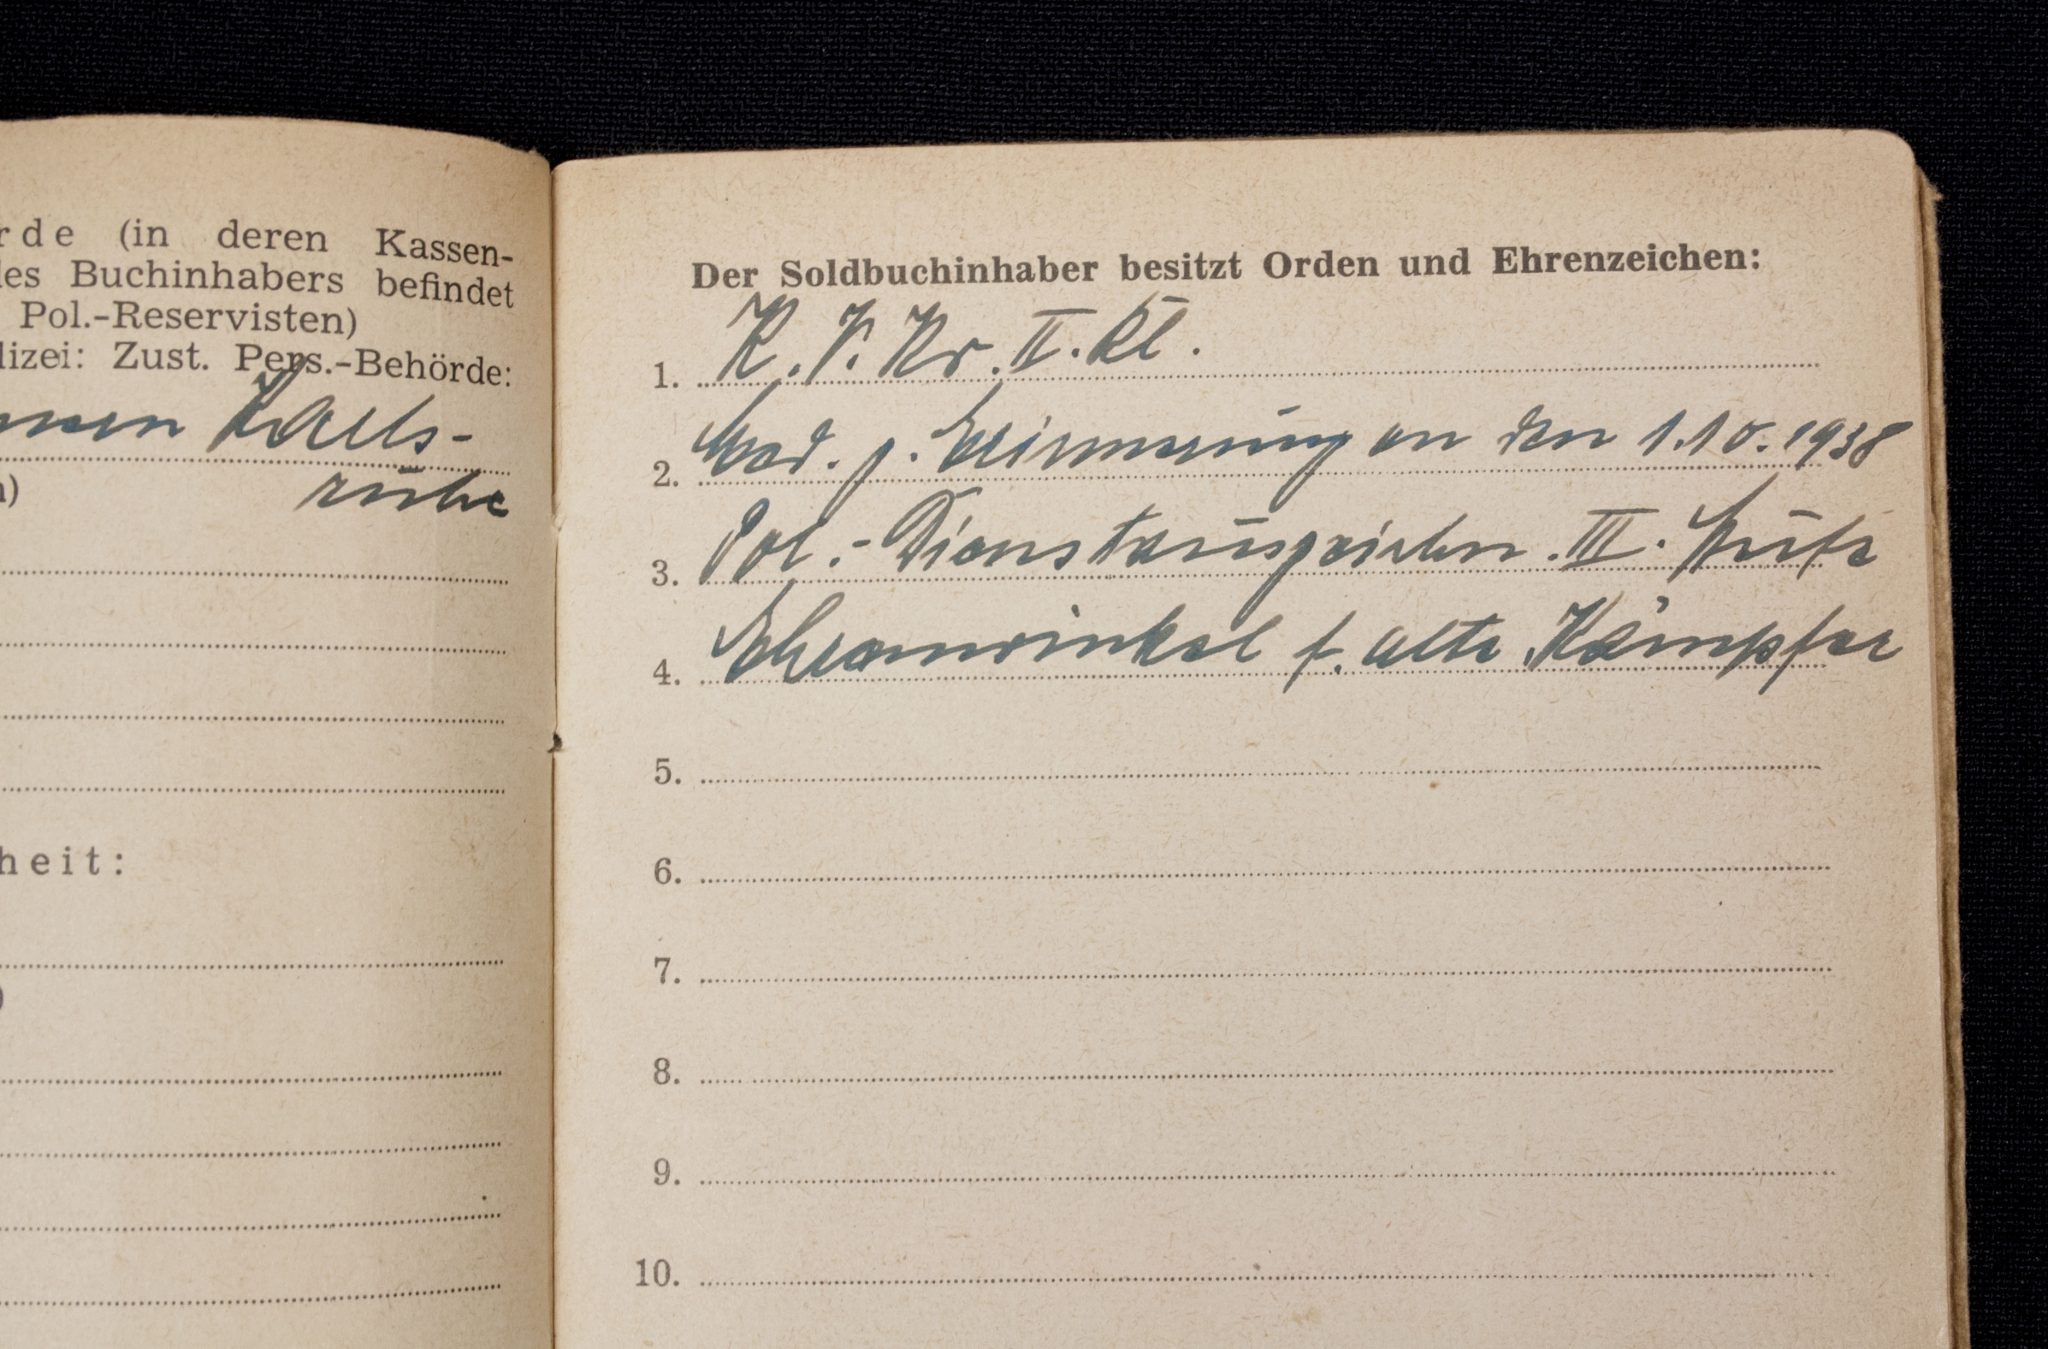 rde (in deren Kassen-
les Buchinhabers befindet
Pol.-Reservisten)
lizei: Zust. Pers.-Behörde:
Karls-
ruhe
)
heit:
)
Der Soldbuchinhaber besitzt Orden und Ehrenzeichen:
1. K.V.Kr. II. Kl.
2. Med. z. Erinnerung an den 1.10.1938
3. Pol.-Dienstauszeichn. III. Stufe
4. Ehrenwinkel f. alte Kämpfer
5.
6.
7.
8.
9.
10.